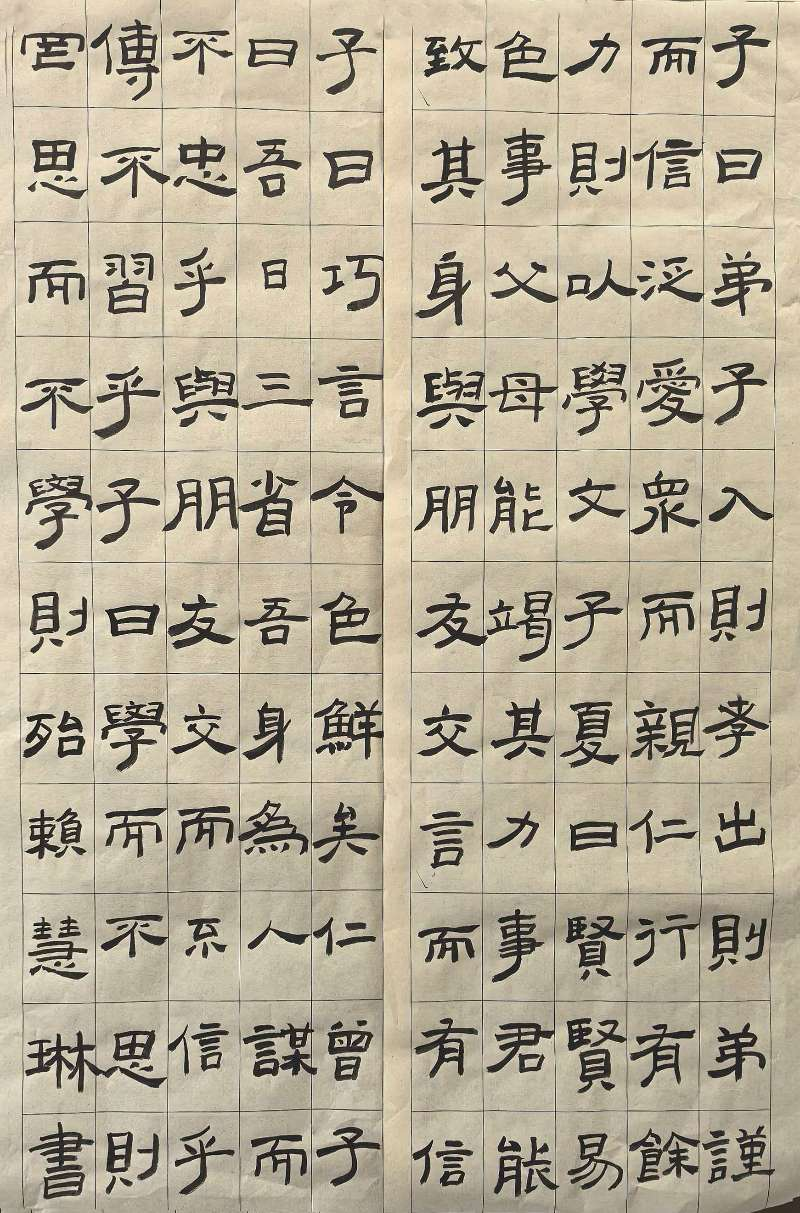 子曰弟子入則孝出則弟謹
而信泛愛衆而親仁行有餘
力則以學文子夏曰賢賢易
色事父母能竭其力事君能
致其身與朋友交言而有信
子曰巧言令色鮮矣仁曾子
曰吾日三省吾身為人謀而
不忠乎與朋友交而不信乎
傳不習乎子曰學而不思則
罔思而不學則殆賴慧琳書